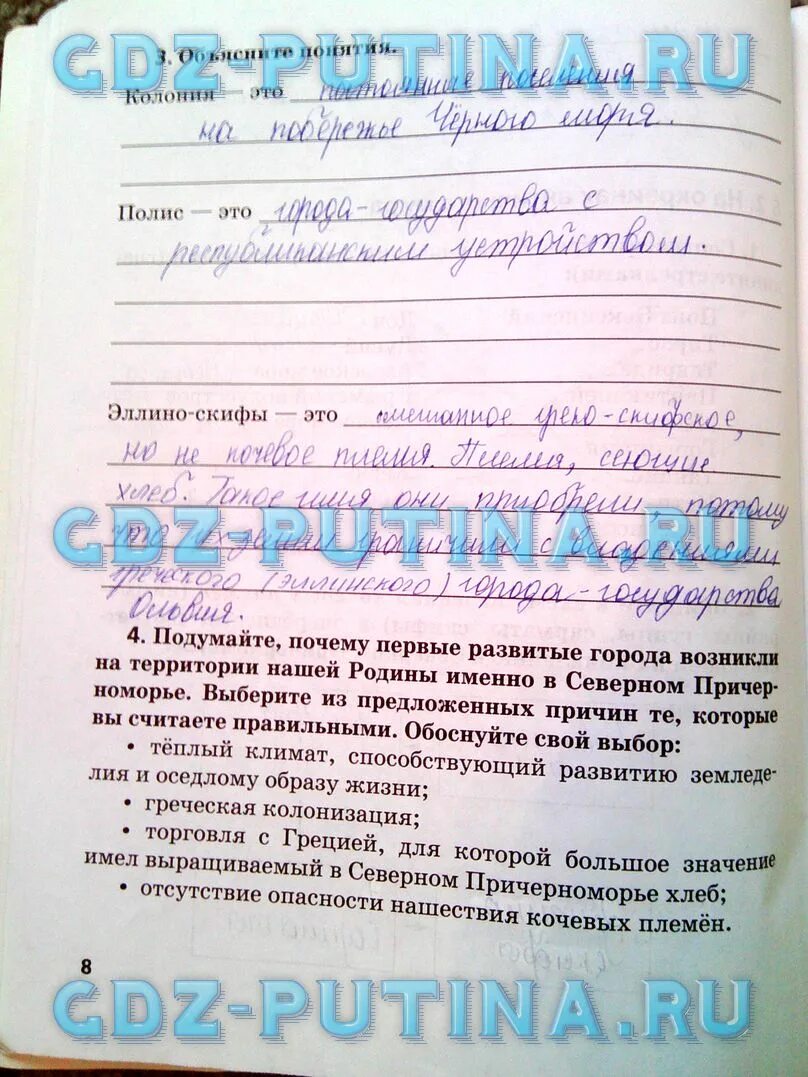 GDZ-PUTINA.RU
3. Объясните понятия.
Колония — это постоянные поселения
на побережье Чёрного моря.
Полис — это города-государства с
республиканским устройством.
Эллино-скифы — это смешанное греко-скифское,
но не кочевое племя. Племя, сеющие
хлеб. Такое имя они приобрели, потому
GDZ-PUTINA.RU
что граничили с владениями
греческого (эллинского) города-государства
Ольвия.
4. Подумайте, почему первые развитые города возникли
на территории нашей Родины именно в Северном Причер-
номорье. Выберите из предложенных причин те, которые
вы считаете правильными. Обоснуйте свой выбор:
• тёплый климат, способствующий развитию земледе-
лия и оседлому образу жизни;
• греческая колонизация;
• торговля с Грецией, для которой большое значение
имел выращиваемый в Северном Причерноморье хлеб;
• отсутствие опасности нашествия кочевых племён.
8
GDZ-PUTINA.RU